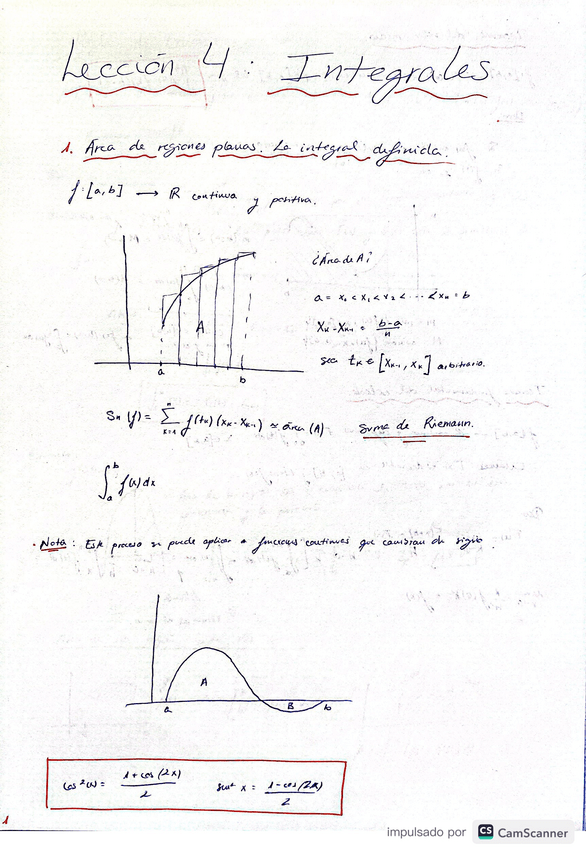 Lección 4 : Integrales
1. Área de regiones planas. La integral definida.
f: [a,b] → ℝ continua y positiva.
¿Área de A?
a = x₀ < x₁ < x₂ < ... < xₙ = b
xₖ - xₖ₋₁ = (b-a)/n
sea tₖ ∈ [xₖ₋₁, xₖ] arbitrario.
A
a b
Sn(f) = ∑ₖ₌₁ⁿ f(tₖ)(xₖ - xₖ₋₁) ≈ área (A) Suma de Riemann.
∫ₐᵇ f(x) dx
· Nota : Este proceso se puede aplicar a funciones continuas que cambian de signo.
A
a B b
cos²(x) = (1 + cos(2x))/2 sen² x = (1 - cos(2x))/2
1
impulsado por CS CamScanner